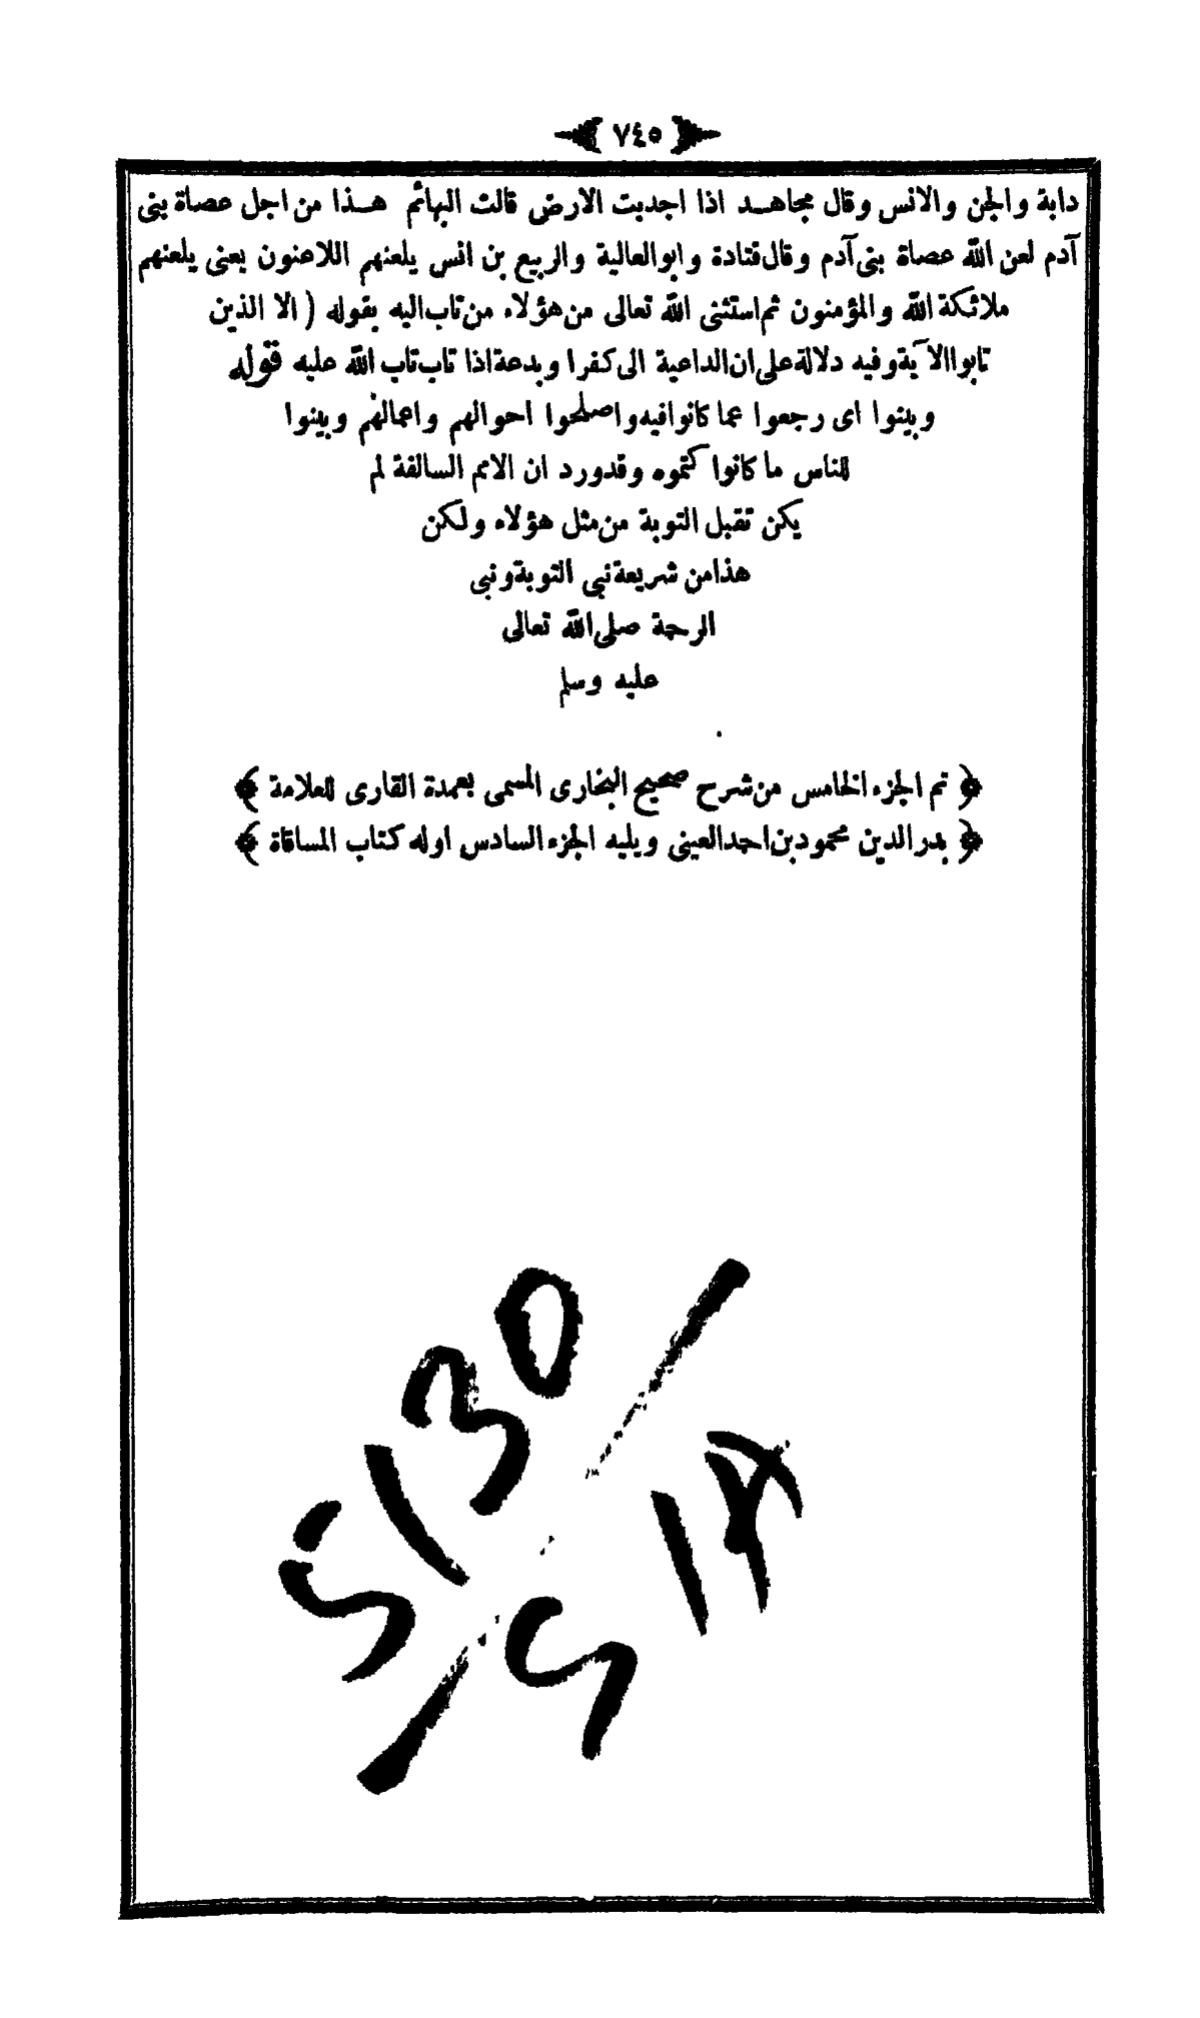 ﴿ ٧٤٥ ﴾
دابة والجن والانس وقال مجاهد اذا اجدبت الارض قالت البهائم هذا من اجل عصاة بنى
آدم لعن الله عصاة بنى آدم وقال قتادة وابو العالية والربيع بن انس يلعنهم اللاعنون يعنى يلعنهم
ملائكة الله والمؤمنون ثم استثنى الله تعالى من هؤلاء من تاب اليه بقوله ( الا الذين
تابوا الآية وفيه دلالة على ان الداعية الى كفر او بدعة اذا تاب تاب الله عليه قوله
وبينوا اى رجعوا عما كانوا فيه واصلحوا احوالهم واعمالهم وبينوا
للناس ما كانوا كتموه وقد ورد ان الامم السالفة لم
يكن تقبل التوبة من مثل هؤلاء ولكن
هذا من شريعة نبى التوبة ونبى
الرحمة صلى الله تعالى
عليه وسلم
﴿ تم الجزء الخامس من شرح صحيح البخارى المسمى بعمدة القارى للعلامة ﴾
﴿ بدر الدين محمود بن احمد العينى ويليه الجزء السادس اوله كتاب المساقاة ﴾